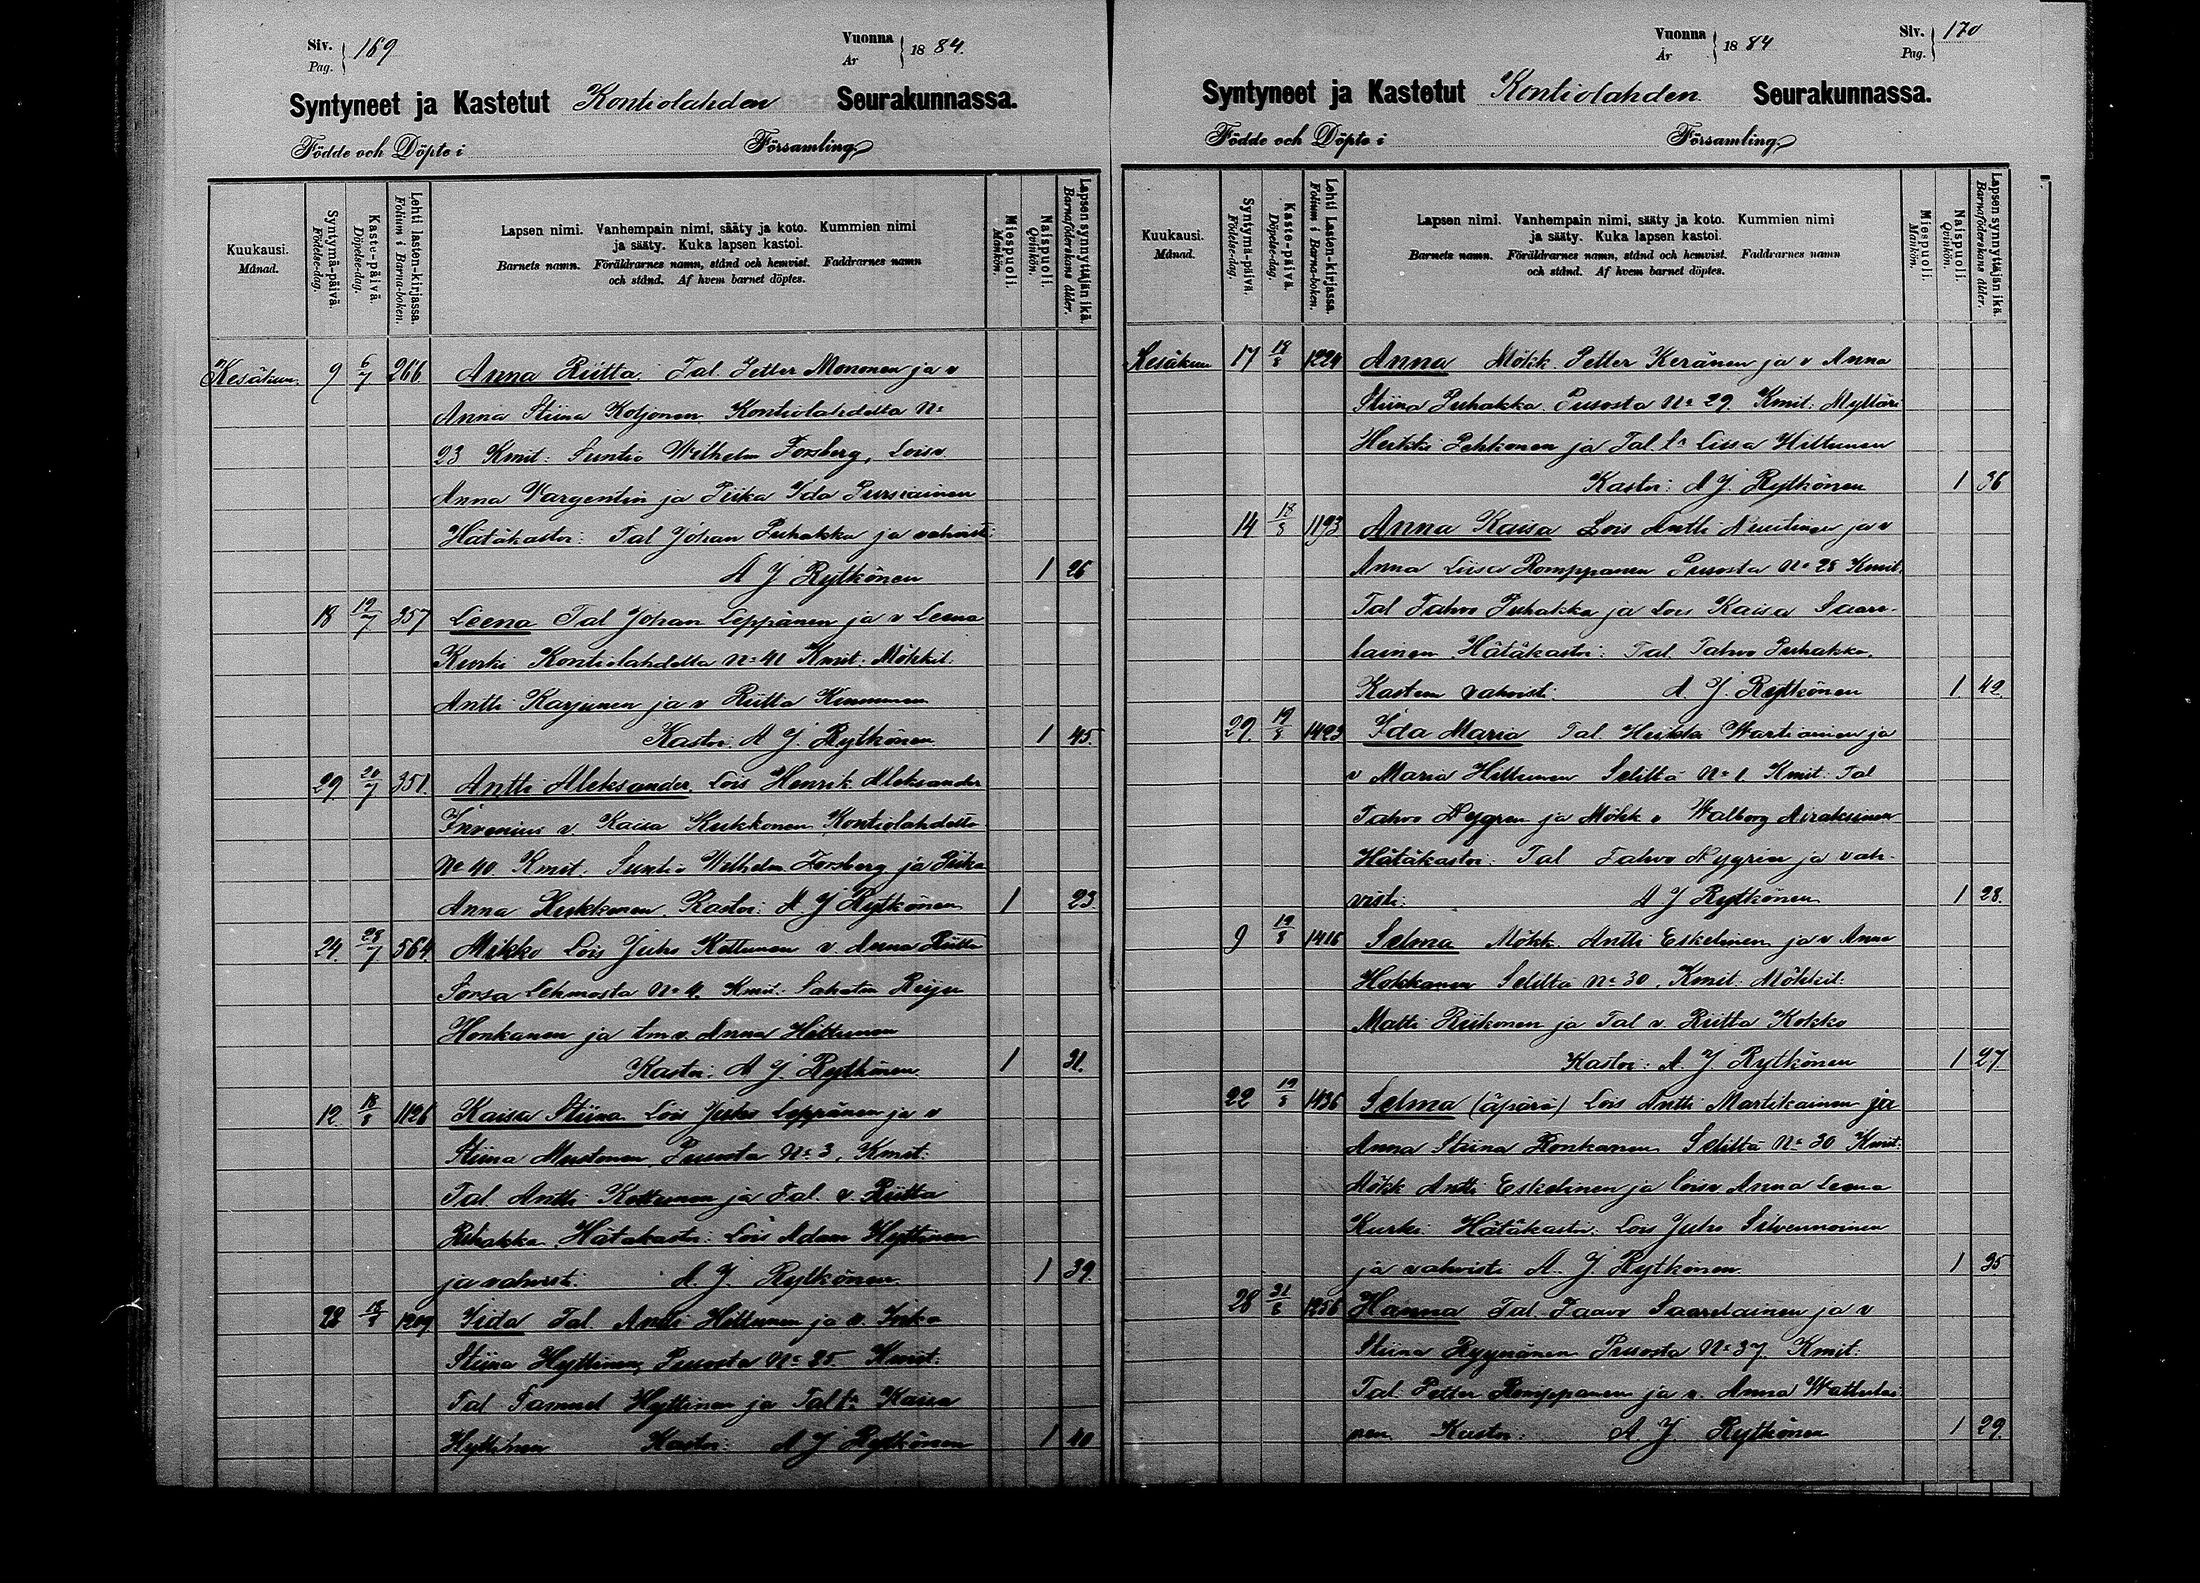 Siv. Pag. 169
Vuonna År 1884.
Syntyneet ja Kastetut Kontiolahden Seurakunnassa.
Födde och Döpte i Församling
Kuukausi. Månad.
Syntymä-päivä. Födelse-dag.
Kastu-päivä. Döpelse-dag.
Lehti lasten-kirjassa. Folium i Barna-boken.
Lapsen nimi. Vanhempain nimi, sääty ja koto. Kummien nimi
ja sääty. Kuka lapsen kastoi.
Barnets namn. Föräldrarnes namn, stånd och hemvist. Faddrarnes namn
och stånd. Af hvem barnet döptes.
Miespuoli. Mankön.
Naispuoli. Qvinkön.
Lapsen synnyttäjän ikä. Barnaföderskans ålder.
Kesäkun. 9 6/7 266 Anna Riitta. Tal Petter Mononen ja v
Anna Stiina Koljonen Kontiolahdelta No
23 Kmit: Suntio Wilhelm Forsberg, Loisv
Anna Wargentin ja Piika Ida Pursiainen
Hätäkastoi: Tal Johan Puhakka ja vahvisti:
A J Rytkönen 1 26
18 19/7 357 Leena Tal Johan Leppänen ja v Leena
Kurki Kontiolahdelta No 41 Kmit. Mökkil.
Antti Karjunen ja v Riitta Kinnunen
Kastoi. A J. Rytkönen 1 45.
29. 20/7 351. Antti Aleksander Lois Henrik Aleksander
Invenius v Kaisa Kukkonen Kontiolahdelta
No 40 Kmit. Suntio Wilhelm Forsberg ja Piika
Anna Kukkonen. Kastoi: A J Rytkönen 1 23
24. 28/7 564. Mikko Lois Juho Kettunen v. Anna Riitta
Sorsa Lehmosta No 4. Kmit: Sahatm Reijo
Honkanen ja v. Anna Hiltunen
Kastoi: A J. Rytkönen 1 31.
12. 18/8 1126 Kaisa Stiina Lois Juho Leppänen ja v
Stiina Mustonen, Puusosta No 3, Kmit:
Tal. Antti Kettunen ja Tal. v Riitta
Puhakka. Hätäkastoi: Lois Adam Hyttinen
ja vahvisti: A. J. Rytkönen 1 39.
28 18/8 1209 Iida Tal. Antti Hiltunen ja v.
Stiina Hyttinen, Puusosta No 25 Kmit:
Tal Samuel Hyttinen ja Tal tr Kaisa
Hyttinen Kastoi: A J Rytkönen 1 40
Vuonna År 1884
Siv. Pag. 170
Syntyneet ja Kastetut Kontiolahden Seurakunnassa.
Födde och Döpte i Församling
Kuukausi. Månad.
Syntymä-päivä. Födelse-dag.
Kaste-päivä. Döpelse-dag.
Lehti Lasten-kirjassa. Folium i Barna-boken.
Lapsen nimi. Vanhempain nimi, sääty ja koto. Kummien nimi
ja sääty. Kuka lapsen kastoi.
Barnets namn. Föräldrarnes namn, stånd och hemvist. Faddrarnes namn
och stånd. Af hvem barnet döptes.
Miespuoli. Mankön.
Naispuoli. Qvinkön.
Lapsen synnyttäjän ikä. Barnaföderskans ålder.
Kesäkuu 17 18/8 1224 Anna Mökk. Petter Keränen ja v Anna
Stiina Puhakka. Puusosta No 29. Kmit: Mylläri
Heikki Pehkonen ja Tal. tr Liisa Hiltunen
Kastoi: A J. Rytkönen 1 36
14 18/8 1193 Anna Kaisa Lois Antti Nuutinen ja v
Anna Liisa Romppanen Puusosta No 28 Kmit.
Tal Tahvo Puhakka ja Lois Kaisa Saare-
lainen. Hätäkastoi: Tal. Tahvo Puhakka.
Kasteen vahvisti: A. J. Rytkönen 1 42
29. 19/8 1423 Ida Maria Tal. Heikki Wartiainen ja
v Maria Hiltunen Seliltä No 1 Kmit: Tal
Tahvo Nygren ja Mökk v Walborg Airaksinen
Hätäkastoi: Tal Tahvo Nygren ja vah-
visti: A J Rytkönen 1 28.
9 19/8 1416 Selma Mökk. Antti Eskelinen ja v Anna
Hokkanen Seliltä No 30. Kmit: Mökkil:
Matti Riikonen ja Tal v. Riitta Kokko
Kastoi: A. J Rytkönen 1 27
22 19/8 1436 Selma (äpärä) Lois Antti Martikainen ja
Anna Stiina Ronkanen Seliltä No 30 Kmit:
Mökk Antti Eskelinen ja loisv Anna Leena
Kurki. Hätäkastoi: Lois Juho Silvennoinen
ja vahvisti A. J. Rytkönen 1 35
28 31/8 1256 Hanna Tal. Paavo Saarelainen ja v
Stiina Ryynänen Puusosta No 37. Kmit:
Tal. Petter Romppanen ja v. Anna Wattulai-
nen Kastoi: A J. Rytkönen 1 29.